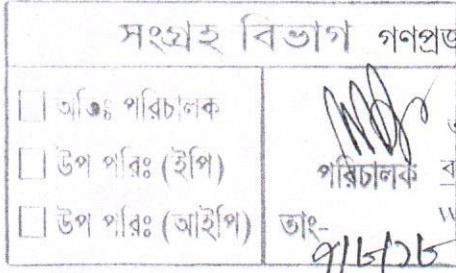 সংগ্রহ বিভাগ গণপ্রজ
অতিঃ পরিচালক
উপ পরিঃ (ইপি)
উপ পরিঃ (আইপি)
পরিচালক
তাং-